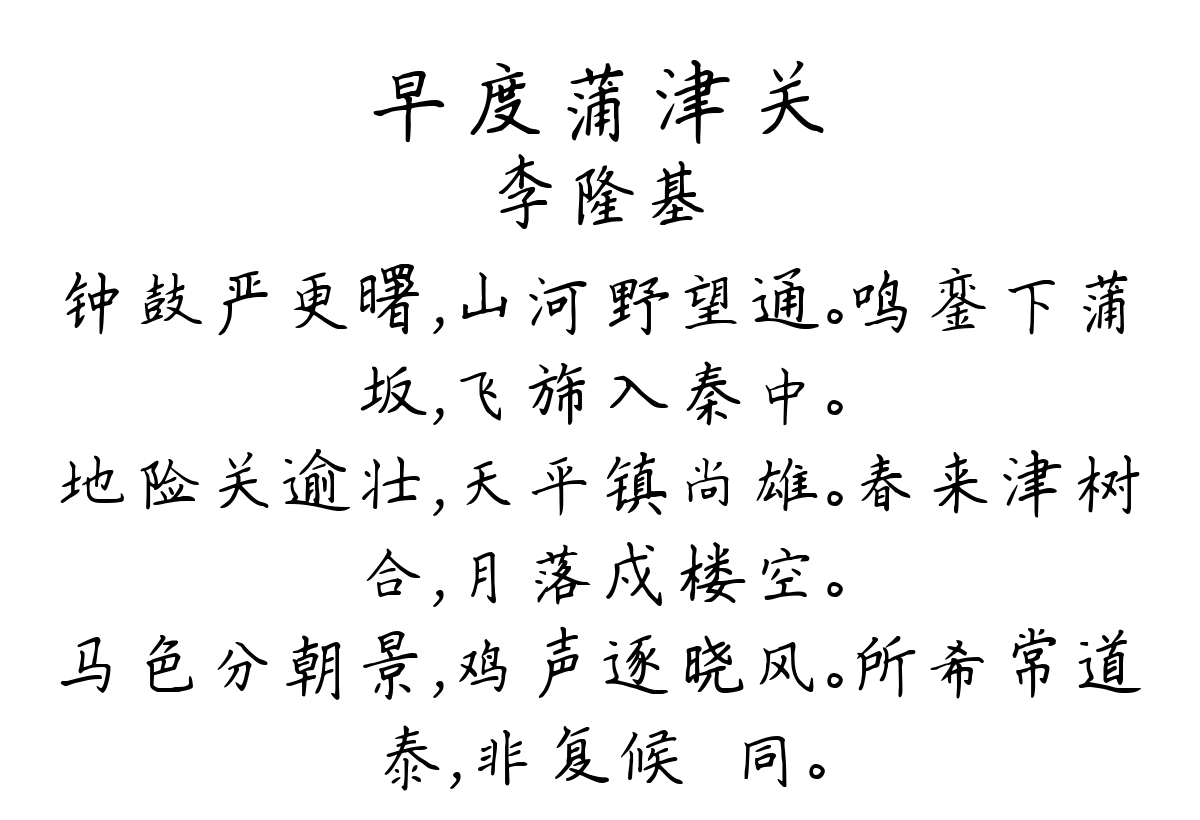 早度蒲津关
李隆基
钟鼓严更曙,山河野望通。鸣銮下蒲
坂,飞旆入秦中。
地险关逾壮,天平镇尚雄。春来津树
合,月落戍楼空。
马色分朝景,鸡声逐晓风。所希常道
泰,非复候 同。